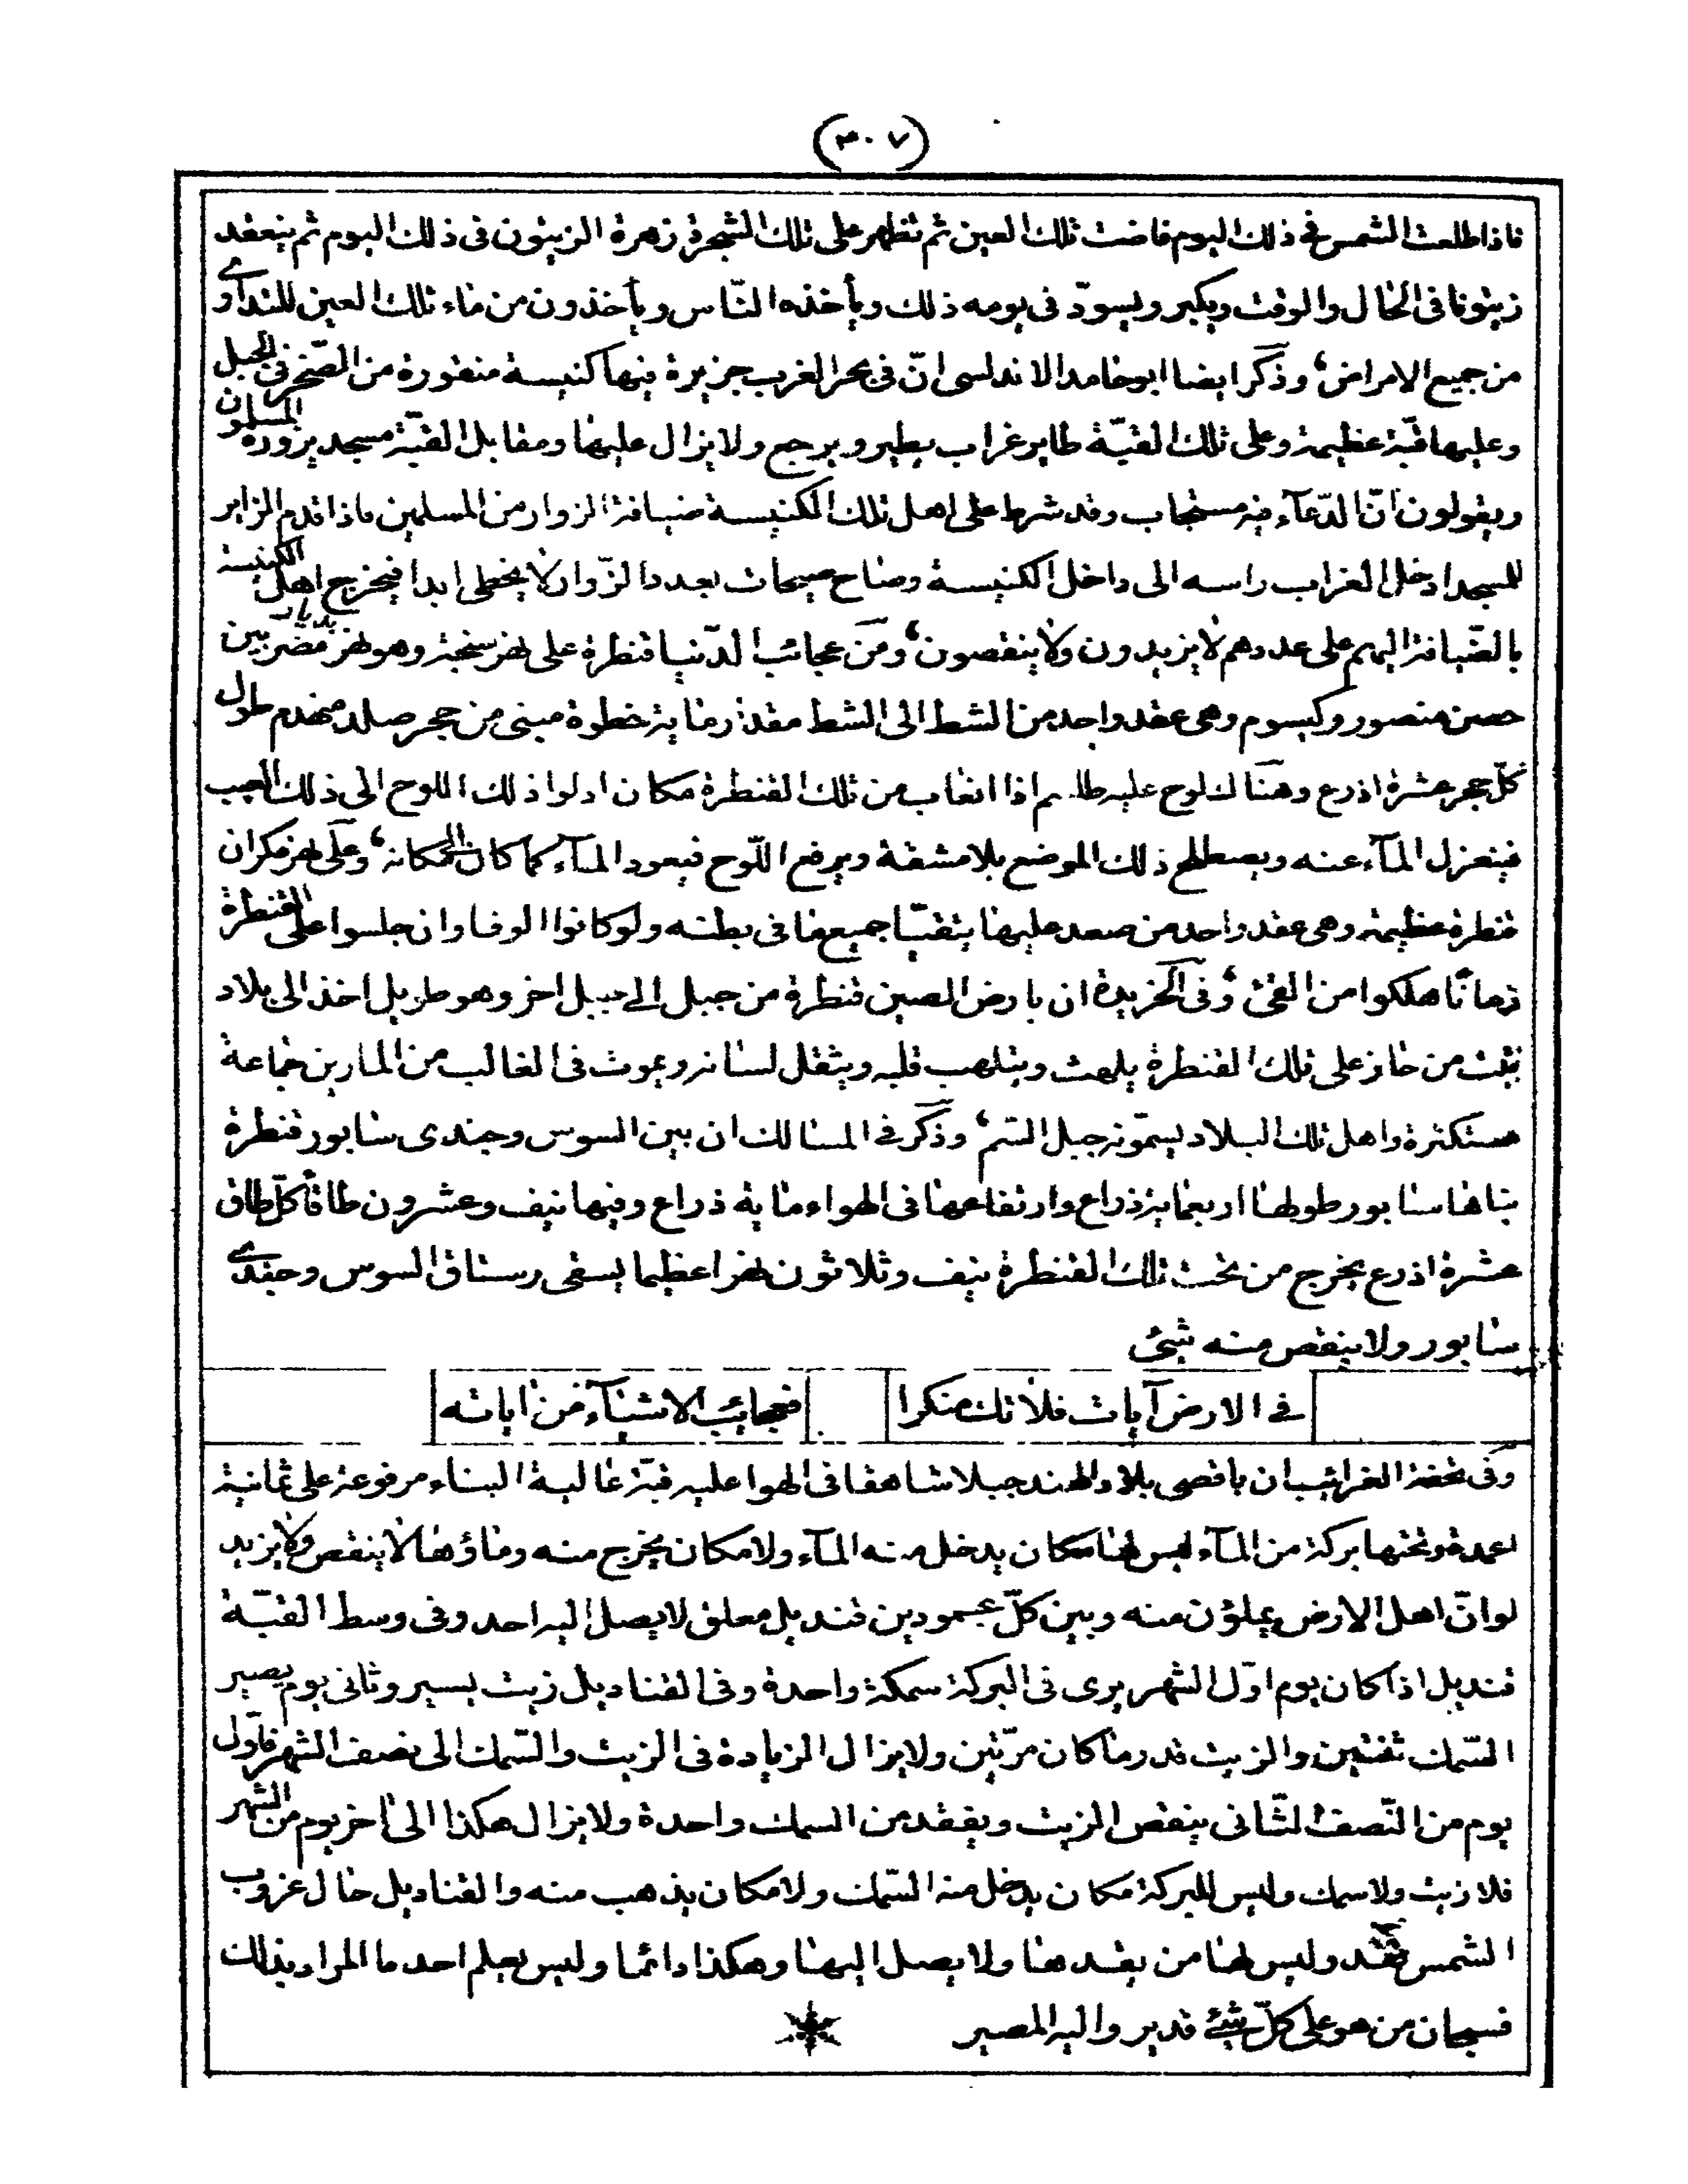 (٣٠٧)
فاذا طلعت الشمس فى ذلك اليوم فاضت تلك العين ثم تظهر على تلك الشجرة زهرة الزيتون فى ذلك اليوم ثم ينعقد
زيتونا فى الحال والوقت ويكبر ويسودّ فى يومه ذلك ويأخذه النّاس ويأخذون من ماء تلك العين للتداوى
من جميع الامراض، وذكر ايضا ابو حامد الاندلسى انّ فى بحر الغرب جزيرة فيها كنيسة منقورة من الصّخر فى الجبل
وعليها قبّة عظيمة وعلى تلك القبّة طاير غراب يطير ويرجع ولا يزال عليها ومقابل القبّة مسجد يزوره المسلمون
ويقولون انّ الدّعآء فيه مستجاب وقد شرط على اهل تلك الكنيسة ضيافة الزوار من المسلمين فاذا قدم الزاير
للمسجد ادخل الغراب راسه الى داخل الكنيسة وصاح صيحات بعدد الزّوار لا يخطى ابدا فيخرج اهل الكنيسة
بالضّيافة اليهم على عددهم لا يزيدون ولا ينقصون، ومن عجائب الدّنيا قنطرة على نهر سنجة وهو نهر بديار مضر بين
حصن منصور وكيسوم وهى عقد واحد من الشط الى الشط مقدار ماية خطوة مبنى من حجر صلد مهندم طول
كلّ حجر عشرة اذرع وهناك لوح عليه طلسم اذا انعاب من تلك القنطرة مكان ادلوا ذلك اللوح الى ذلك العيب
فينعزل المآء عنه ويصطلح ذلك الموضع بلا مشقة ويرفع اللّوح فيعود المآء كما كان الى مكانه، وعلى نهر مكران
قنطرة عظيمة وهى عقد واحد من صعد عليها يتقيّا جميع ما فى بطنه ولو كانوا الوفا وان جلسوا على القنطرة
زمانًا هلكوا من القئ، وفى الخريدة ان بارض الصين قنطرة من جبل الى جبل اخر وهو طريل اخذ الى بلاد
تبّت من جاز على تلك القنطرة يلهث ويتلهب قلبه ويثقل لسانه ويموت فى الغالب من المارين جماعة
مستكثرة واهل تلك البلاد يسمّونه جبل السّم، وذكر فى المسالك ان بين السوس وجندى سابور قنطرة
بناها سابور طولها اربعماية ذراع وارتفاعها فى الهواء ماية ذراع وفيها نيف وعشرون طاقا كلّ طاق
عشرة اذرع يخرج من تحت تلك القنطرة نيف وثلاثون نهرا عظيما يسقى رستاق السوس وجندى
سابور ولا ينقص منه شئ
فى الارض آيات فلا تك منكرا فعجايب الاشيآء من اياته
وفى تحفة الغرائب ان باقصى بلاد الهند جبلا شاهقا فى الهوا عليه قبّة عالية البناء مرفوعة على ثمانية
اعمدة وتحتها بركة من المآء ليس لها مكان يدخل منه المآء ولا مكان يخرج منه وماؤها لا ينقص ولا يزيد
لو انّ اهل الارض يملؤن منه وبين كلّ عمودين قنديل معلق لا يصل اليه احد وفى وسط القبّة
قنديل اذا كان يوم اوّل الشهر يرى فى البركة سمكة واحدة وفى القناديل زيت يسير وثانى يوم يصير
السّمك ثنتين والزيت قدر ما كان مرّتين ولا يزال الزيادة فى الزيت والسّمك الى نصف الشهر فاوّل
يوم من النّصف الثّانى ينقص الزيت ويفقد من السمك واحدة ولا يزال هكذا الى اخر يوم من الشهر
فلا زيت ولا سمك وليس للبركة مكان يدخل منه السّمك ولا مكان يذهب منه والقناديل حال غروب
الشمس تقد وليس لها من يقدها ولا يصل اليها وهكذا دائما وليس يعلم احد ما المراد بذلك
فسبحان من هو على كلّ شئ قدير واليه المصير